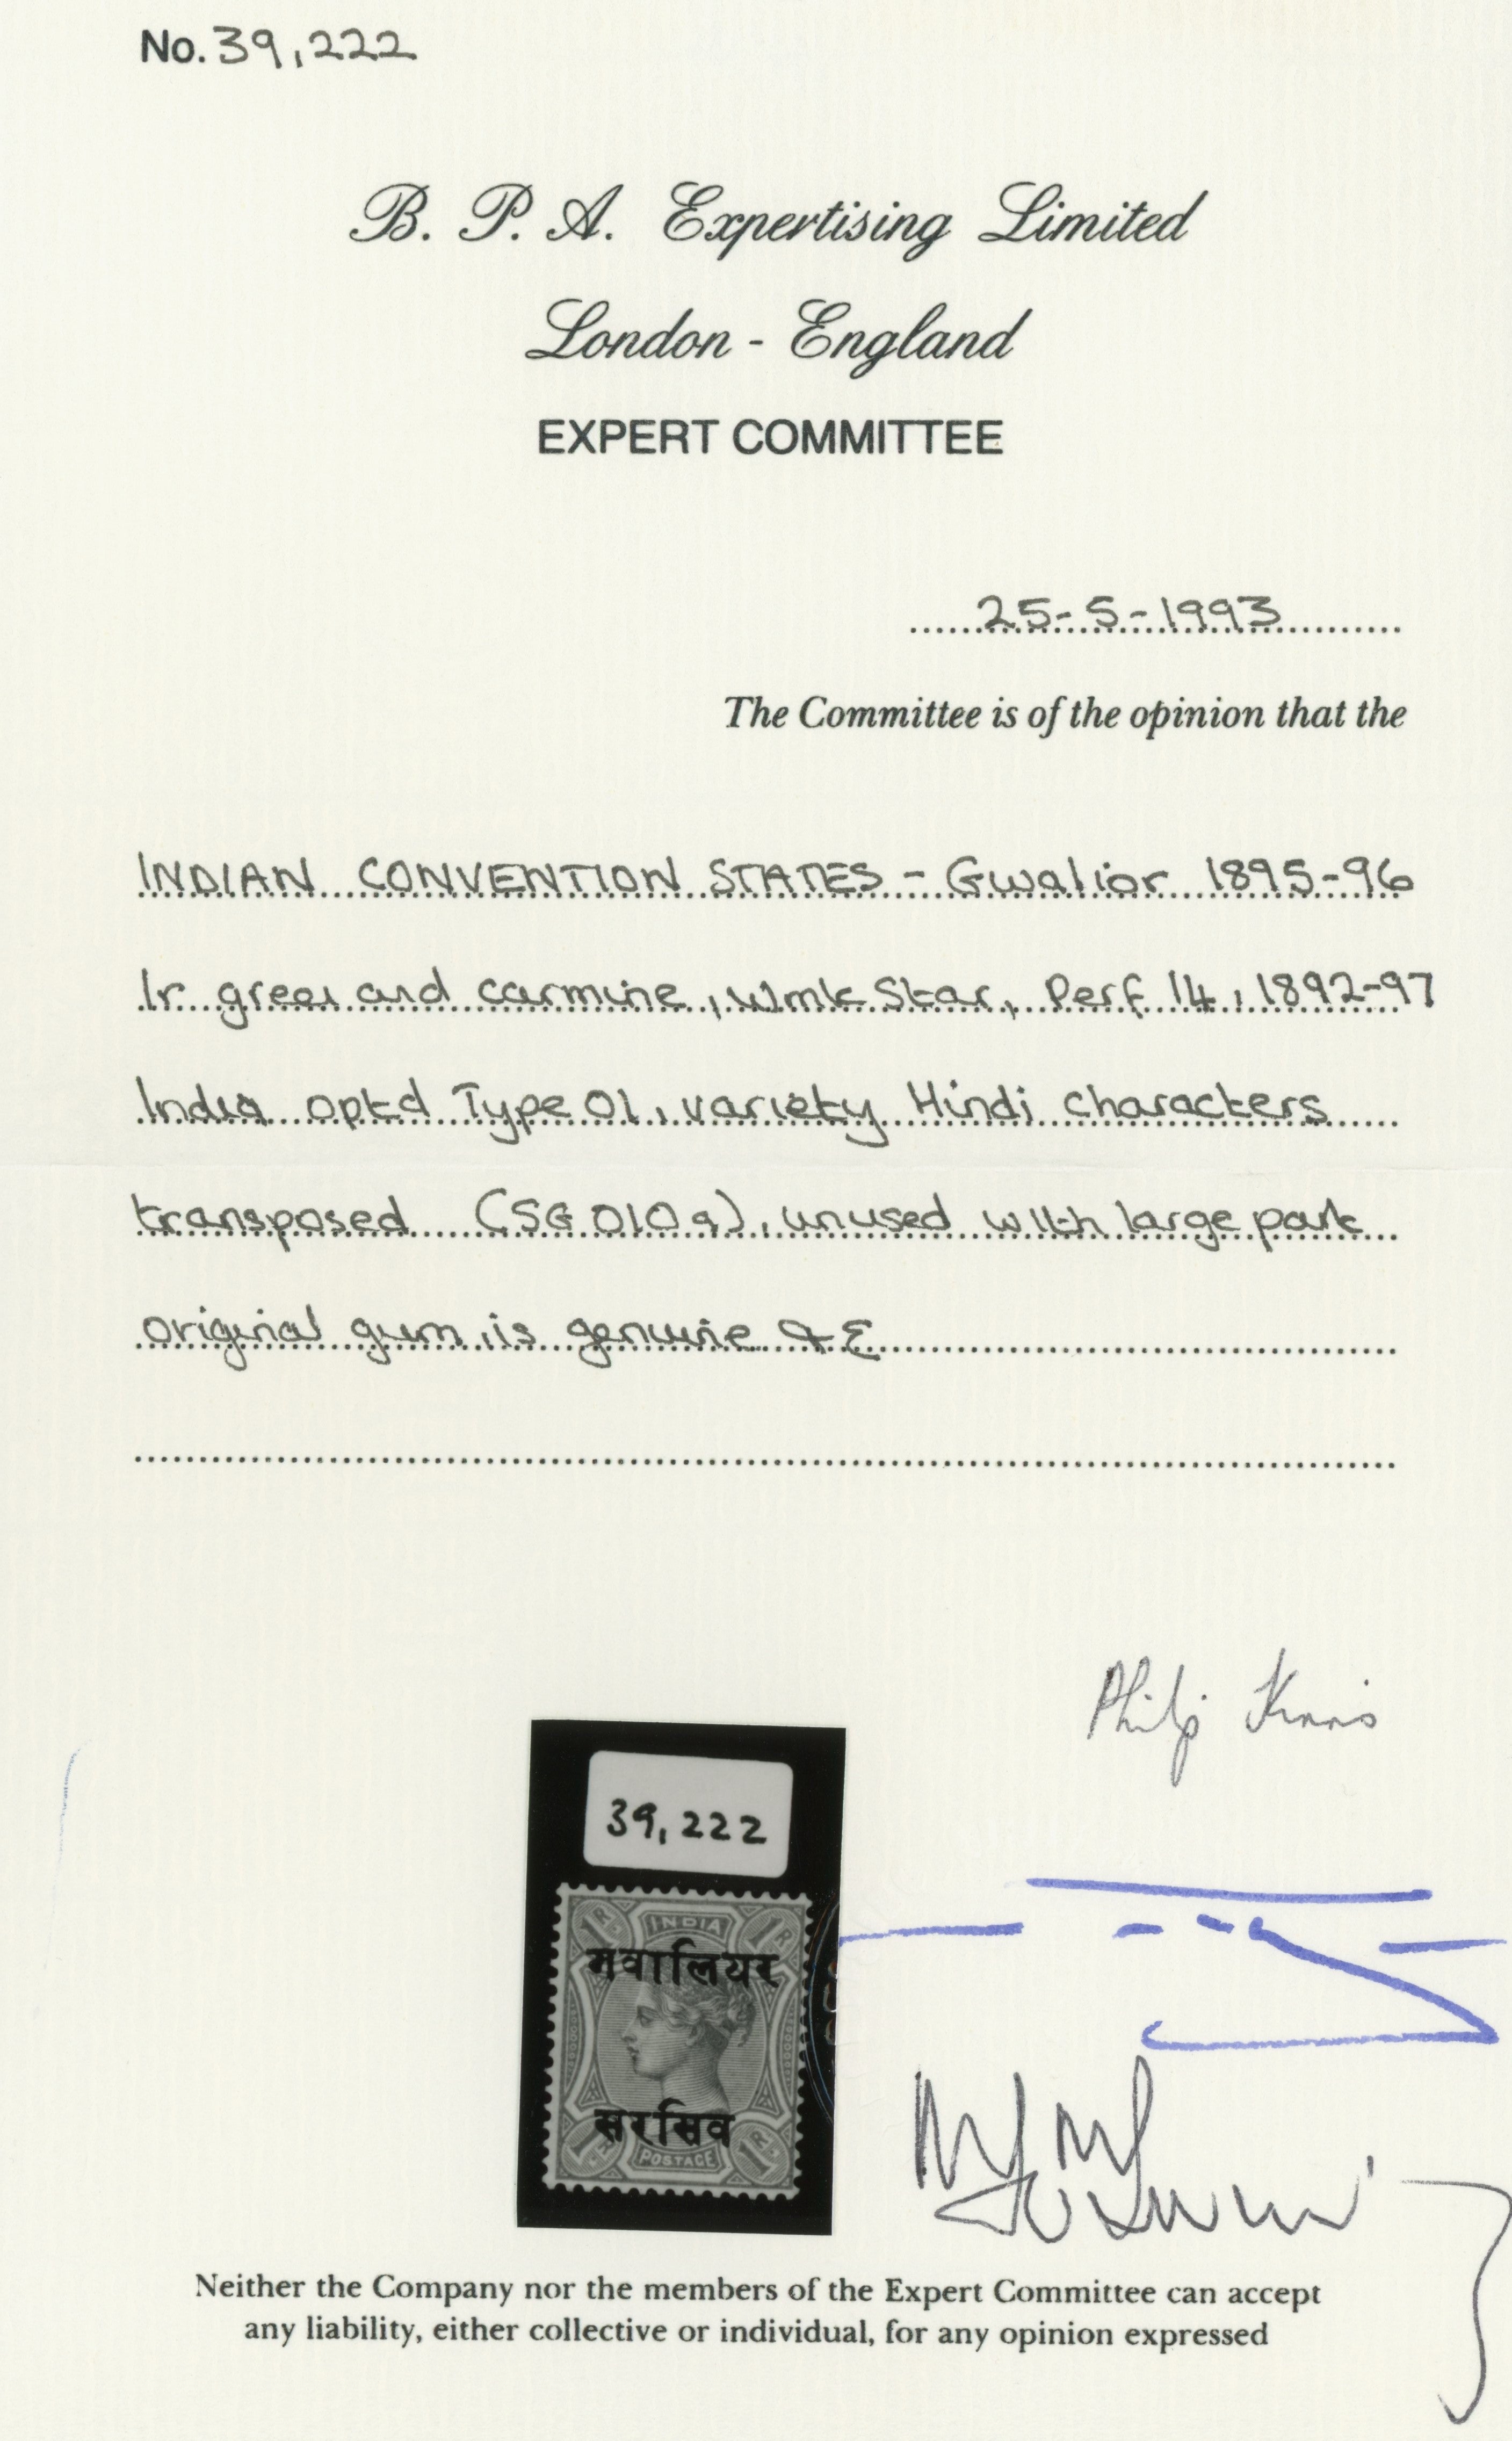 No. 39,222
B. P. A. Expertising Limited
London - England
EXPERT COMMITTEE
25-5-1993
The Committee is of the opinion that the
INDIAN CONVENTION STATES - Gwalior 1895-96
1r green and carmine, Wmk Star, Perf 14, 1892-97
India optd Type O1, variety Hindi characters
transposed (SG O10a), unused with large part
original gum, is genuine
Philip
39,222
1R. INDIA 1R.
गवालियर
सरसिव
1R. POSTAGE 1R.
Neither the Company nor the members of the Expert Committee can accept
any liability, either collective or individual, for any opinion expressed